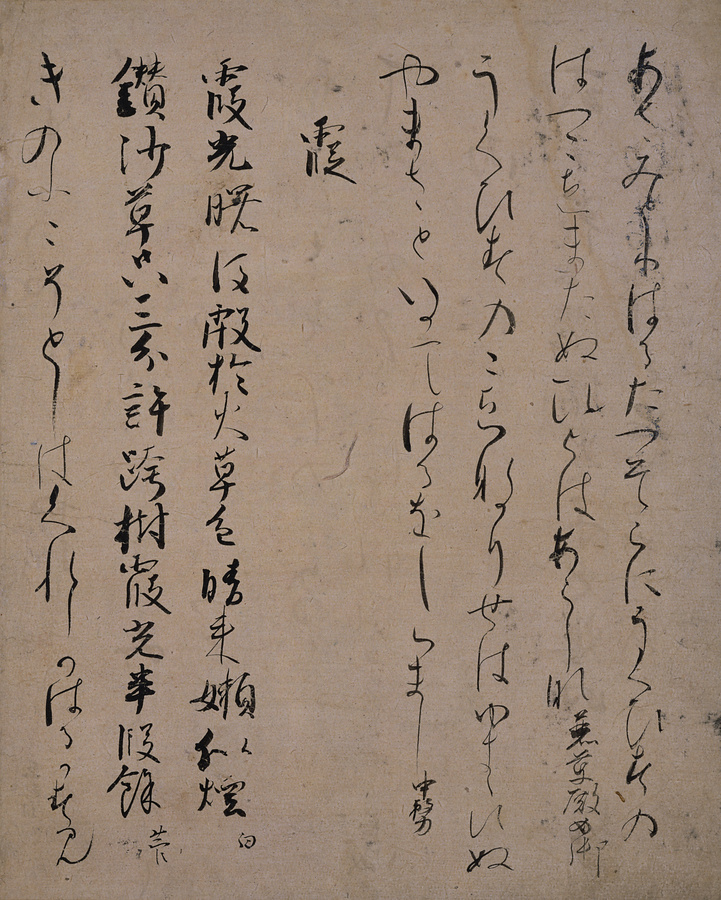 あさみとりはるたつそらにうくひすの
はつこゑまたぬひとはあらしな 麗景殿女御
うくひすのこゑなかりせはゆきゝえぬ
やまさといかてはるをしらまし 中務
霞
霞光曙後殷於火草色晴来嫩似煙 白
鑽沙草只三分許跨樹霞光半段餘 菅
きのふこそとしはくれしかはるかすみ